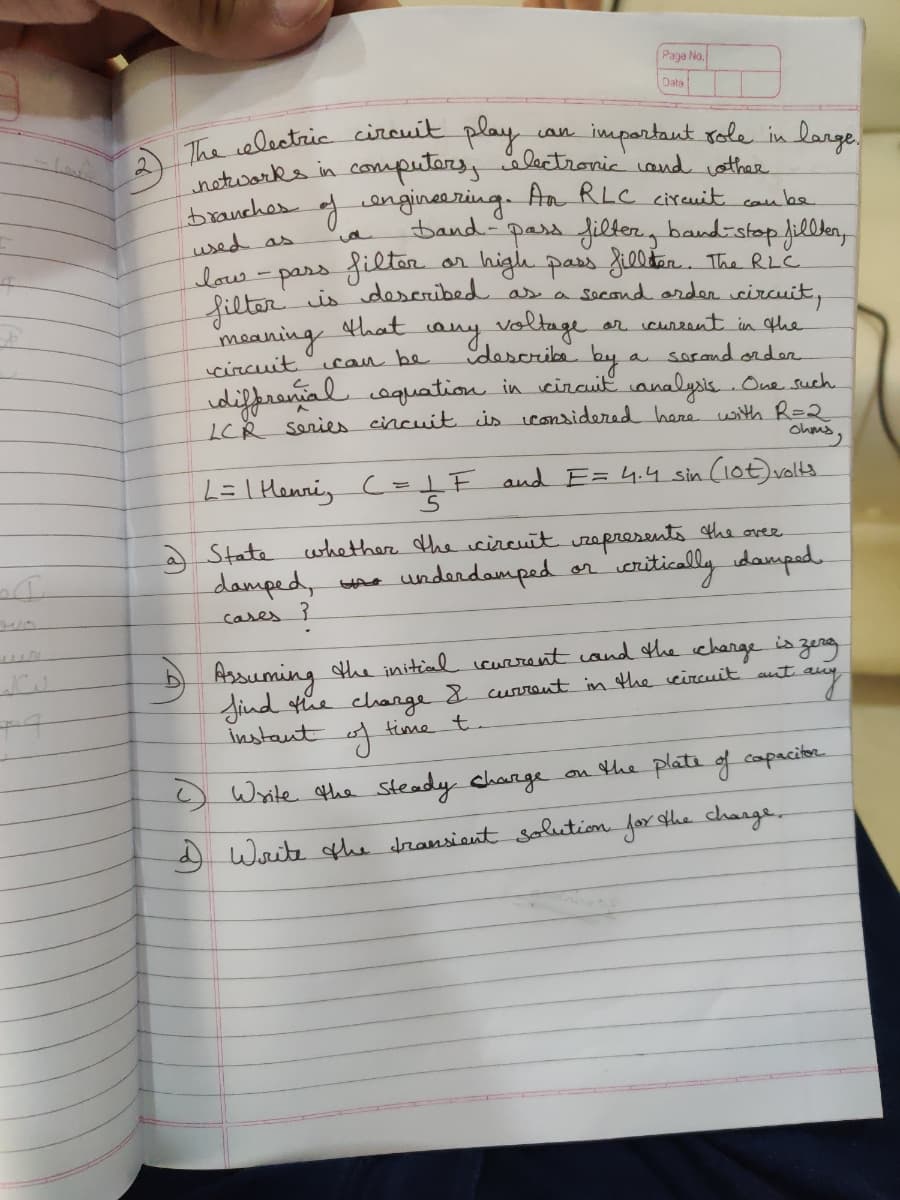 Page No.
Date
2) The electric circuit play an important role in large.
networks in computers, electronic and other
branches of engineering. An RLC circuit can be
used as a band-pass filter, band-stop fillter,
low-pass filter or high pass fillter. The RLC
filter is described as a second order circuit,
meaning that any voltage or current in the
circuit can be describe by a second order
diffrenial equation in circuit analysis. One such
LCR series circuit is considered here with R=2
ohms,
L=1 Henri, C=1/5 F and E= 4.4 sin (10t) volts
a) State whether the circuit represents the over
damped, underdamped or critically damped
cases ?
b) Assuming the initial current and the charge is zero
find the charge & current in the circuit ant any
instant of time t.
c) Write the steady charge on the plate of capacitor
d) Write the transient solution for the charge.